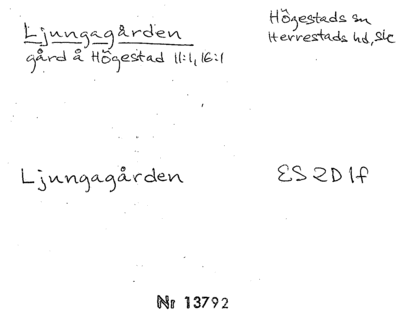 Ljungagården
gård å Högestad 11:1, 16:1
Högestads sn
Herrestads hd, Sk
Ljungagården
ES 2D 1f
Nr 13792